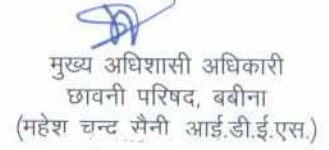 मुख्य अधिशासी अधिकारी
छावनी परिषद, बबीना
(महेश चन्द सैनी आई.डी.ई.एस.)